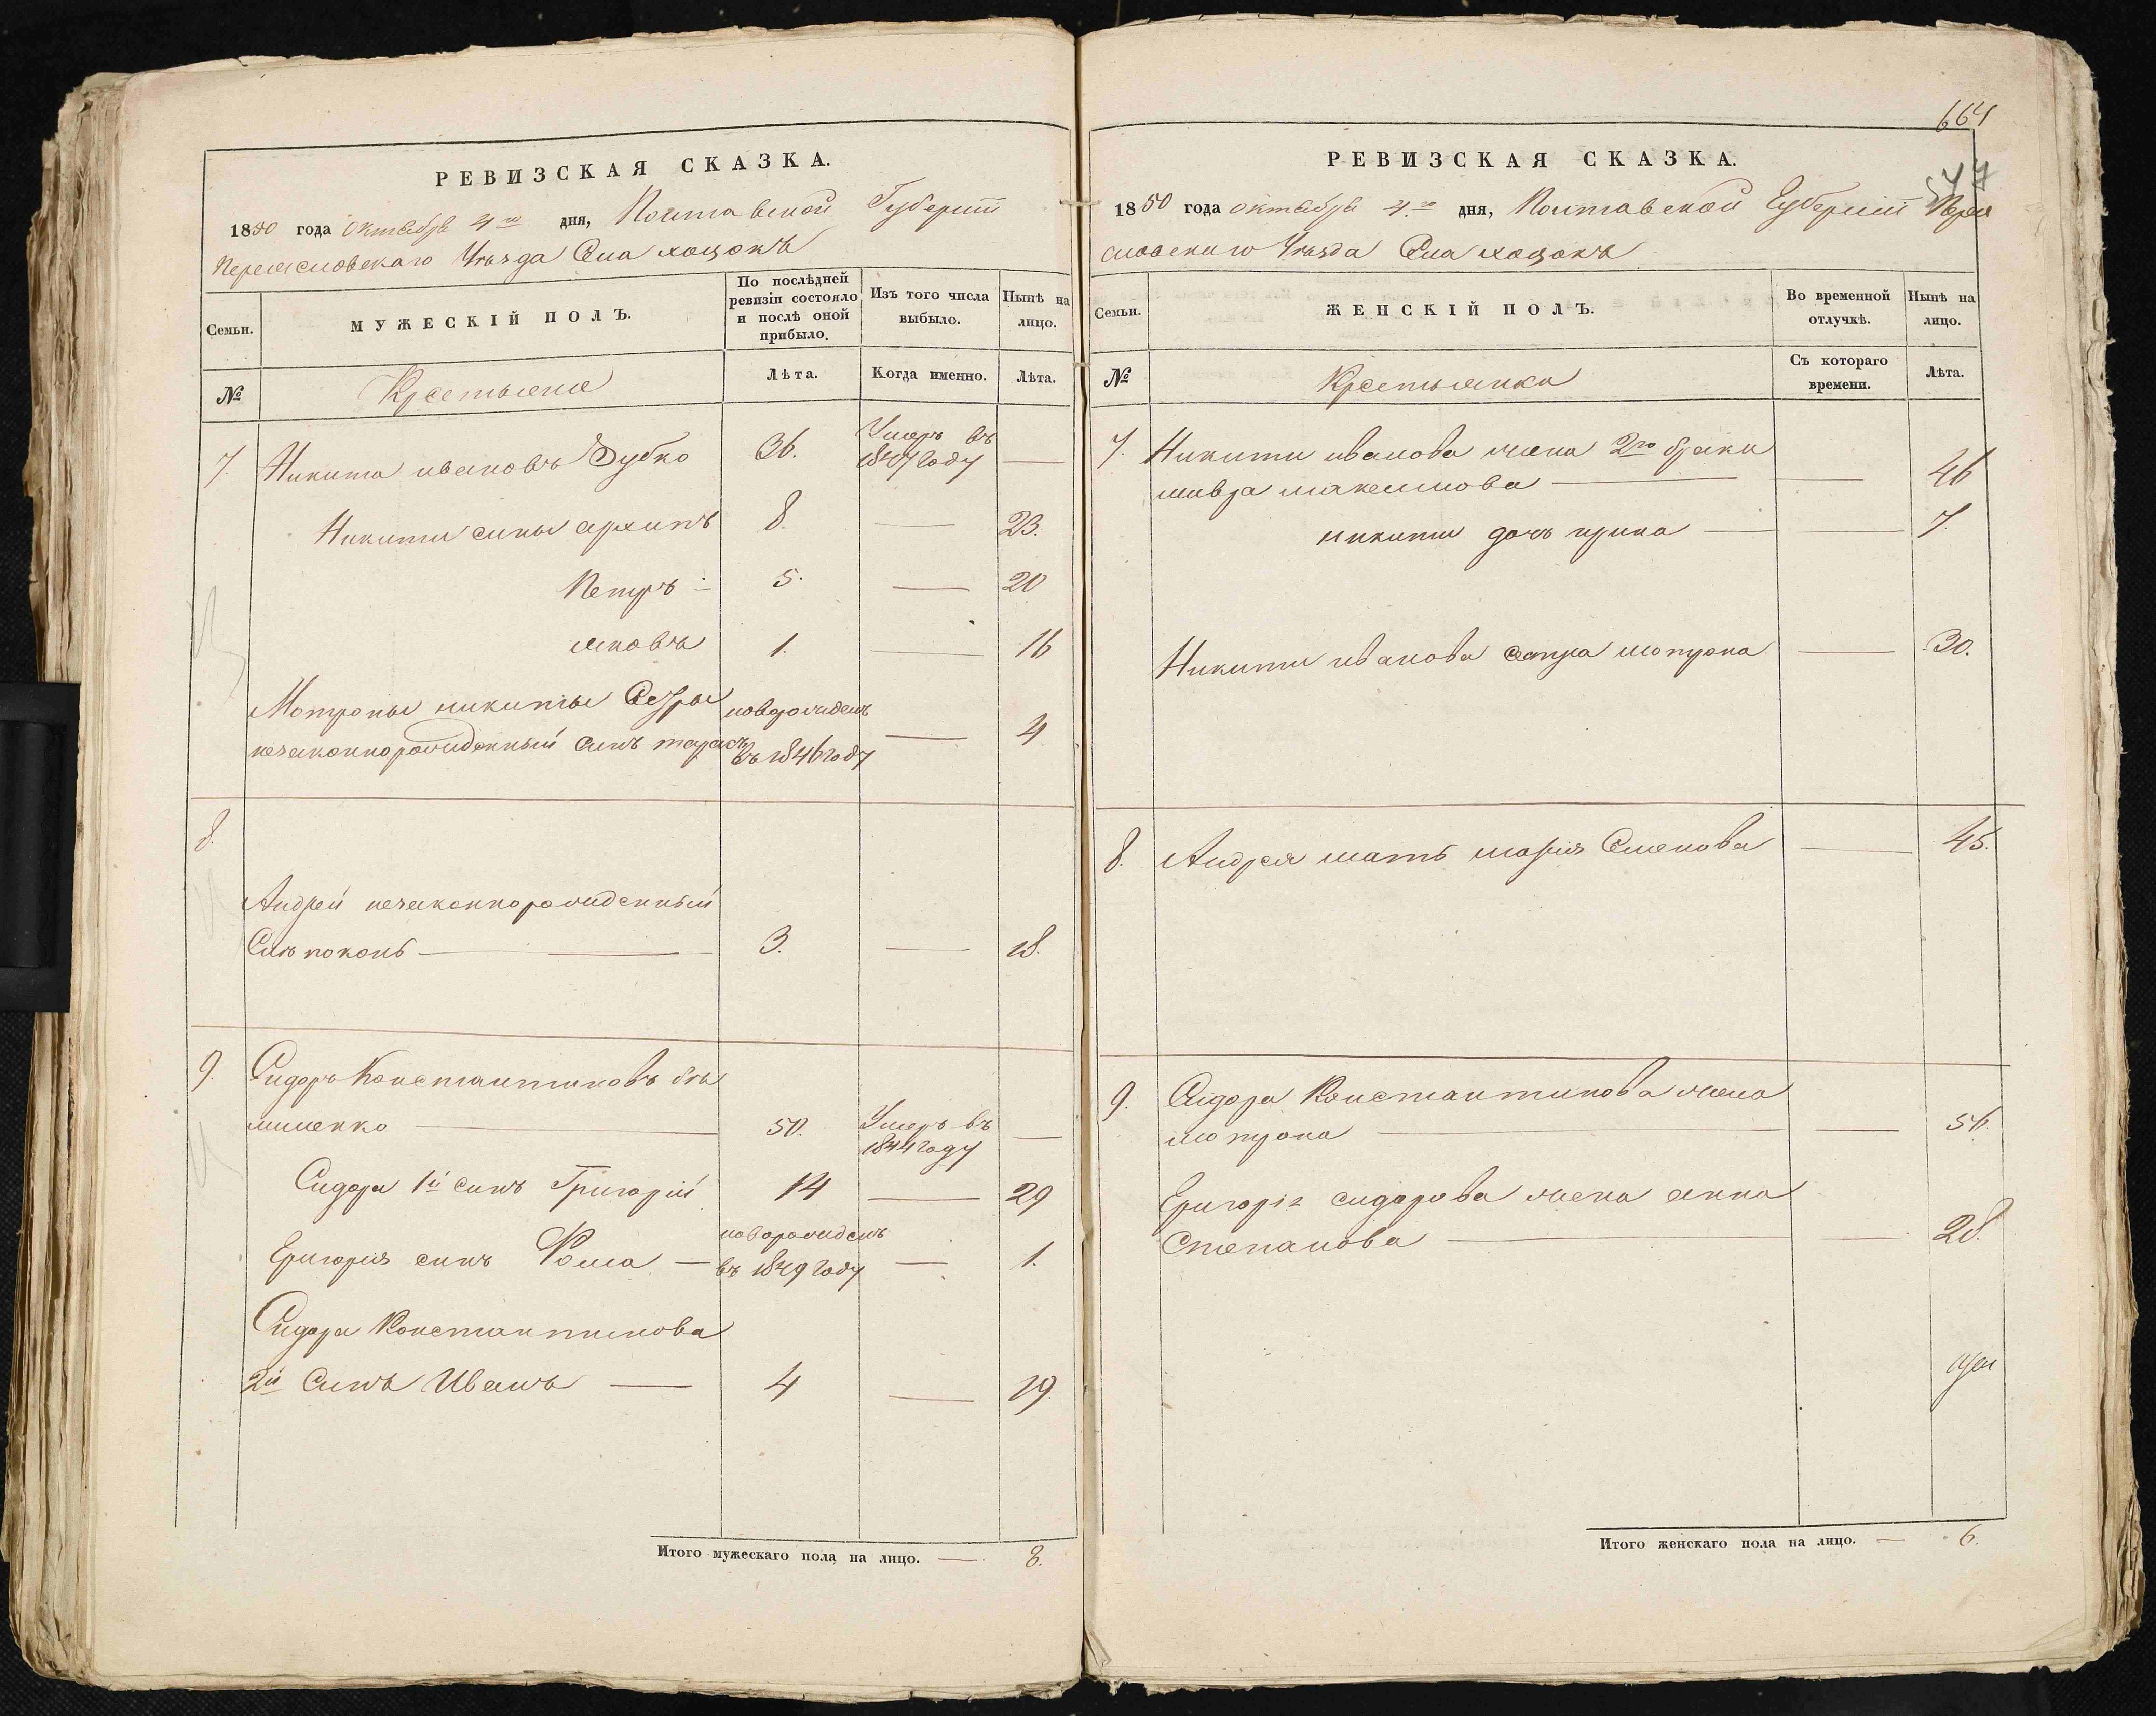 РЕВИЗСКАЯ СКАЗКА.
1850 года октября 4го дня, Полтавской Губернии
Переясловскаго Уѣзда Села хоцокъ
Семьи.
МУЖЕСКІЙ ПОЛЪ.
По послѣдней
ревизіи состояло
и послѣ оной
прибыло.
Изъ того числа
выбыло.
Нынѣ на
лицо.
№
Крестьяне
Лѣта.
Когда именно.
Лѣта.
7. Никита ивановъ Зубко 36. Умеръ въ
году —
Никиты сины архипъ 8. — 23.
Петръ 5. — 20
яковъ 1. — 16
Мотроны никиты Сестры новорожденъ
незаконнорожденный синъ тарасъ въ 1846 году — 4
8.
Андрей незаконнорожденный
3. — 18.
9. Сидоръ Константиновъ
50. Умеръ въ
1844 году —
Сидора 1й синъ Григорій 14 — 29
новорожденъ
Григорія синъ Фома — въ 1849 году — 1.
Сидора Константинова
2й Синъ Иванъ — 4 — 19
Итого мужескаго пола на лицо. — 8.
664
РЕВИЗСКАЯ СКАЗКА.
1850 года октября 4го дня, Полтавской Губерніи Перея
словскаго Уѣзда Села хоцокъ
Семьи.
ЖЕНСКІЙ ПОЛЪ.
Во временной
отлучкѣ.
Нынѣ на
лицо.
№
Крестьянки
Съ котораго
времени.
Лѣта.
7. Никиты иванова жена 2го брака
максимова — — 46
никиты дочь ирина — — 7.
Никиты иванова сестра мотрона — 30.
8. Андрея мать марія Семенова — 45.
9. Сидора Константинова жена
мотрона — — 56
Григорія сидорова жена анна
Степанова — — 28.
Итого женскаго пола на лицо. — 6.